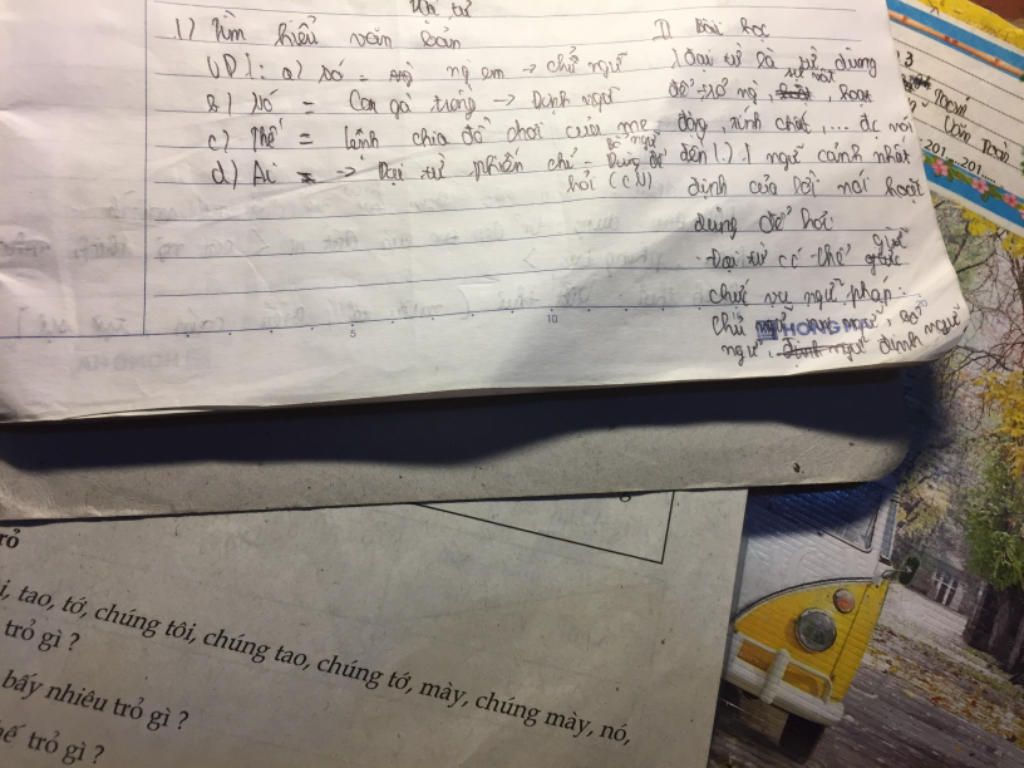 1) Tìm hiểu văn bản
VD1: a) Nó = ng em → chủ ngữ
b) Nó = Con gà trống → Định ngữ
c) Thế = lệnh chia đồ chơi của mẹ
bổ ngữ
d) Ai → Đại từ phiến chỉ - Dùng để
hỏi (CN)
I) Bài học
1 Đại từ là từ dùng
sự vật
để trỏ ng, hoạt
động, tính chất, ... đc nói
đến (.) 1 ngữ cảnh nhất
định của lời nói hoặc
dùng để hỏi
giữ
Đại từ có thể
chức vụ ngữ pháp:
chủ ngữ, bổ
ngữ, định ngữ
5
10
HONG HA
13
Toán
Văn Toàn
201 ...201.....
rỏ
i, tao, tớ, chúng tôi, chúng tao, chúng tớ, mày, chúng mày, nó,
trỏ gì ?
bấy nhiêu trỏ gì ?
hế trỏ gì ?